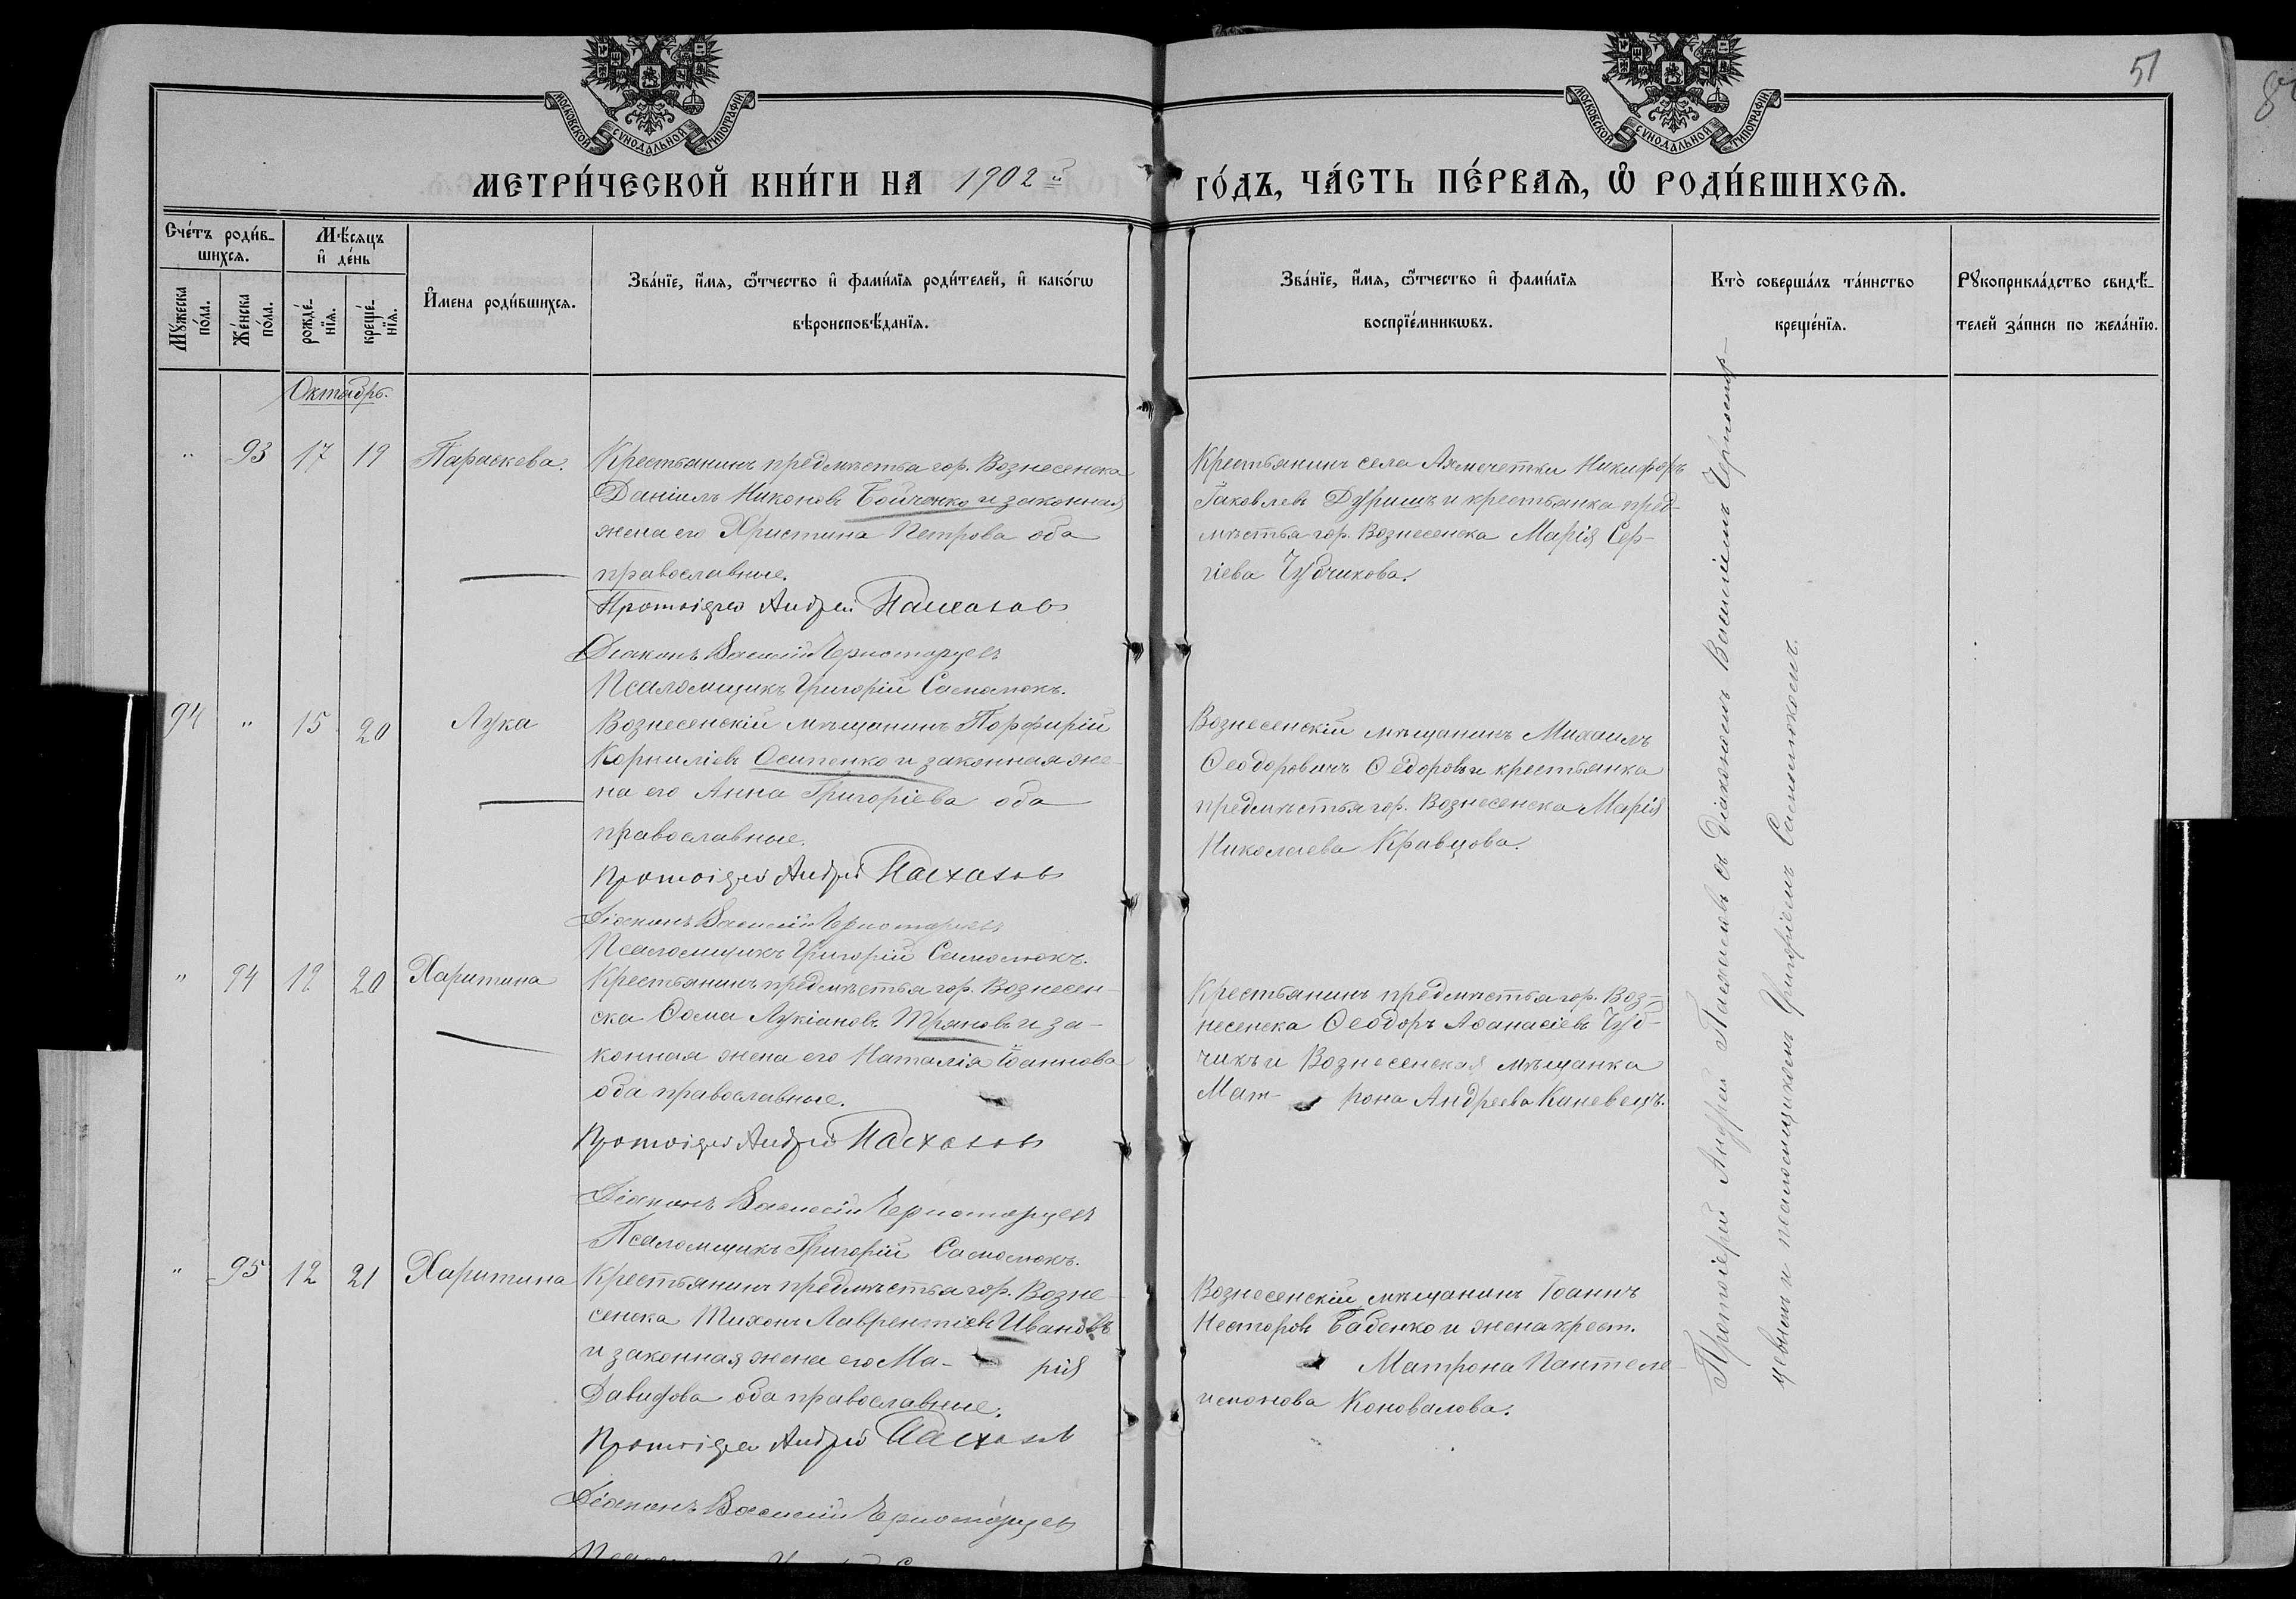 51
МОСКОВСКОЙ СѴНОДАЛЬНОЙ ТИПОГРАФІИ
МОСКОВСКОЙ СѴНОДАЛЬНОЙ ТИПОГРАФІИ
МЕТРИ́ЧЕСКОЙ КНИ́ГИ НА 1902й
ГО́ДЪ, ЧА́СТЬ ПЕ́РВАѦ, Ѡ҆ РОДИ́ВШИХСѦ.
Сче́тъ роди́в-
шихсѧ.
Мꙋ́жеска
по́ла.
Же́нска
по́ла.
Мѣ́сѧцъ
и҆ де́нь
рожде́-
нїѧ.
креще́-
нїѧ.
И҆мена роди́вшихсѧ.
Зва́нїе, и҆́мѧ, ѻ҆́тчество и҆ фами́лїѧ роди́телей, и҆ како́гѡ
вѣроисповѣ́данїѧ.
Зва́нїе, и҆́мѧ, ѻ҆́тчество и҆ фами́лїѧ
воспрїе́мникѡвъ.
Кто̀ соверша́лъ та́инство
креще́нїѧ.
Рꙋкоприкла́дство свидѣ́-
телей за́писи по жела́нїю.
Октябрь.
" 93 17 19 Параскева.
Крестьянинъ предмѣстья гор. Вознесенска
Даніилъ Никоновъ Бойченко и законная
жена его Христина Петрова оба
православные.
Протоіерей Андрей Пасхаловъ
Діаконъ Василій Черноморцевъ
Псаломщикъ Григорій Самолюкъ.
Крестьянинъ села Ахмечетки Никифоръ
Іаковлевъ Дуришъ и крестьянка пред-
мѣстья гор. Вознесенска Марія Сер-
гіева Чудчикова.
94 " 15 20 Лука
Вознесенскій мѣщанинъ Порфирій
Корниліевъ Осипенко и законная же-
на его Анна Григоріева оба
православные.
Протоіерей Андрей Пасхаловъ
Діаконъ Василій Черноморцевъ
Псаломщикъ Григорій Самолюкъ.
Вознесенскій мѣщанинъ Михаилъ
Ѳеодоровичъ Ѳедоровъ и крестьянка
предмѣстья гор. Вознесенска Марія
Николаева Кравцова.
" 94 12 20 Харитина
Крестьянинъ предмѣстья гор. Вознесен-
ска Ѳома Лукіановъ Трановъ и за-
конная жена его Наталія Іоаннова
оба православные.
Протоіерей Андрей Пасхаловъ
Діаконъ Василій Черноморцевъ
Псаломщикъ Григорій Самолюкъ.
Крестьянинъ предмѣстья гор. Воз-
несенска Ѳеодоръ Аѳанасіевъ Чуд-
чикъ и Вознесенская мѣщанка
Мат- рона Андреева Каневецъ.
" 95 12 21 Харитина
Крестьянинъ предмѣстья гор. Возне-
сенска Тихонъ Лаврентіевъ Ивановъ
и законная жена его Ма- рія
Давидова оба православные.
Протоіерей Андрей Пасхаловъ
Діаконъ Василій Черноморцевъ
Вознесенскій мѣщанинъ Іоаннъ
Несторовъ Бабенко и жена крест.
Матрона Пантеле-
имонова Коновалова.
Протоіерей Андрей Пасхаловъ съ діакономъ Василіемъ Черномор-
цевымъ и псаломщикомъ Григоріемъ Самолюкомъ.